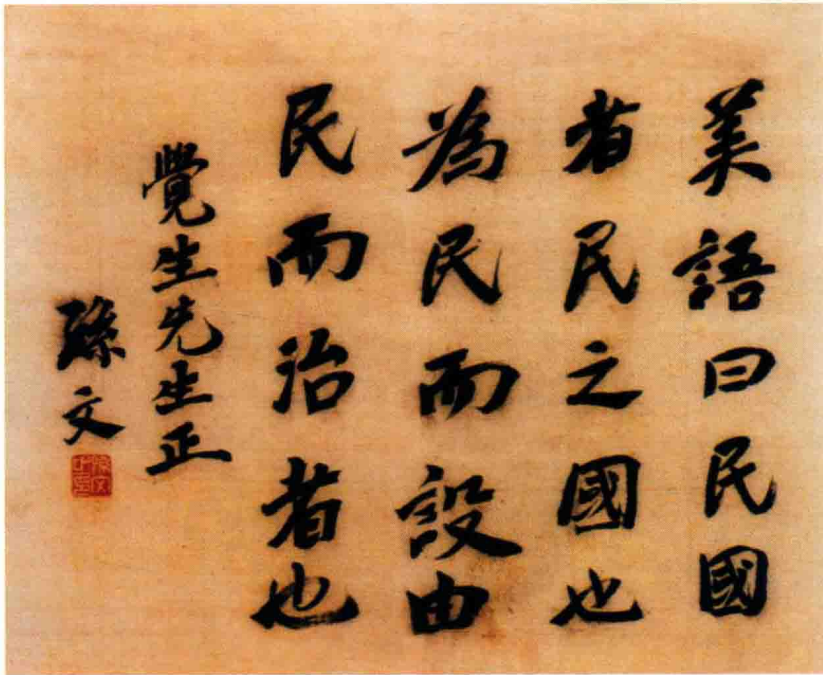 美語曰民國
者民之國也
為民而設由
民而治者也
覺生先生正
孫文
孫文之印